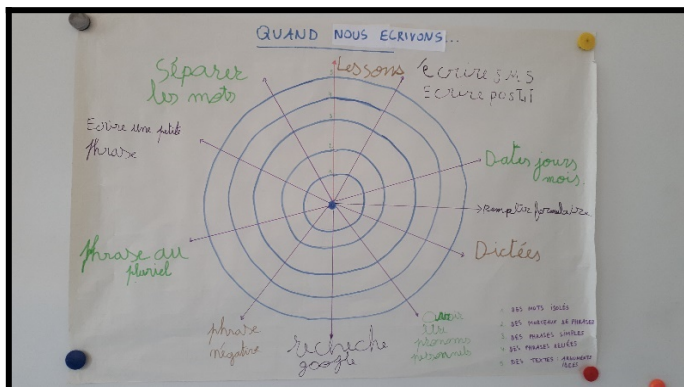 QUAND NOUS ECRIVONS...
Séparer
les mots
Lessons
écrire SMS
Ecrire
Ecrire une petite
phrase
Dates jours
mois.
remplir formulaire
phrase au
pluriel
Dictées
phrase
négative
recheche
google
pronoms
personnels
1 DES MOTS ISOLÉS
2 DES MORCEAUX DE PHRASES
3 DES PHRASES SIMPLES
4 DES PHRASES RELIÉES
5 DES TEXTES :